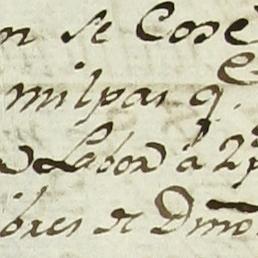 n se Cose
milpas q.
Labor a 2
ibres de Dmo